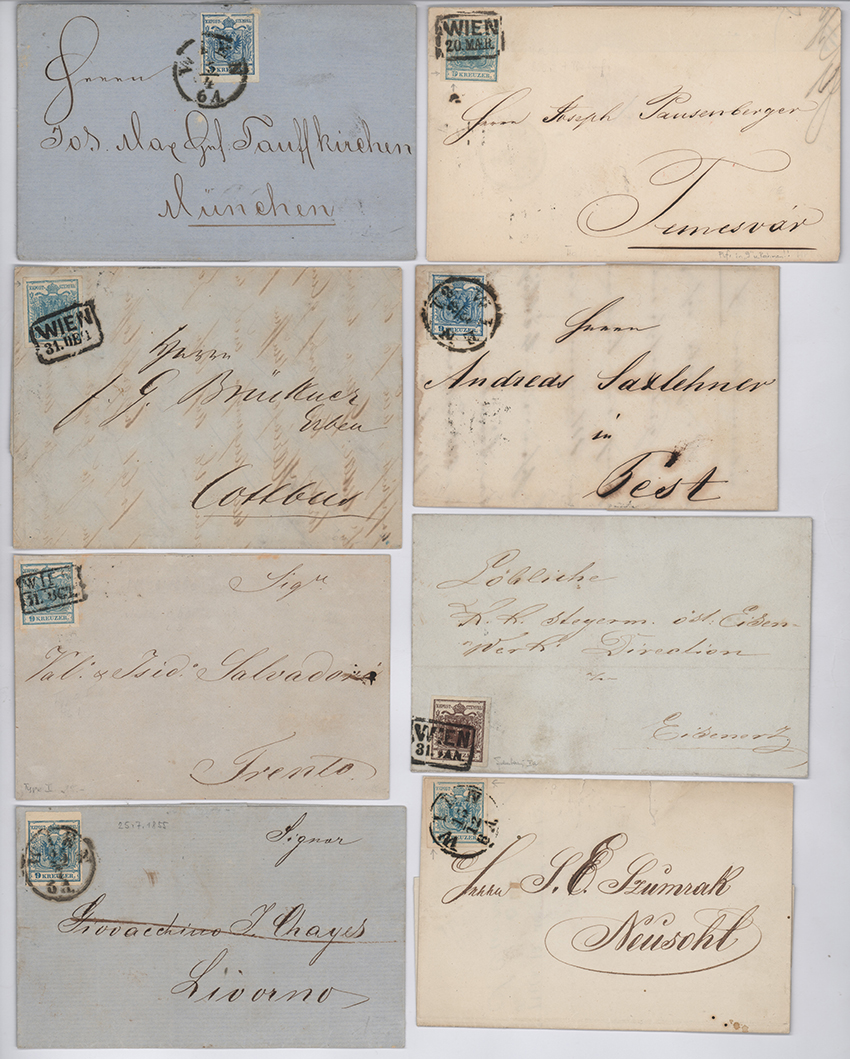 WIEN
4
6 A.
9 KREUZER
Herrn
Jos. Max Gf. Tauffkirchen
München
WIEN
20. MÆR.
9 KREUZER.
Herrn Joseph Pausenberger
Temesvár
WIEN
31. DEC.
Herrn
J. G. Brückner
Erben
Cottbus
9 KREUZER
Herrn
Andreas Saxlehner
in
Pest
WIE
31. OCT.
9 KREUZER.
Sigri
Val. & Isid. Salvadori
Trento.
Type II
Löbliche
K. k. steyerm. öst. Eisen-
Werks Direction
Eisenerz
WIEN
31. JAN.
2517.1855
9 KREUZER
6 A.
Signor
Giovacchino J. Chayes
Livorno
WIEN
12
6 A.
Herrn S. E. Szumrak
Neusohl